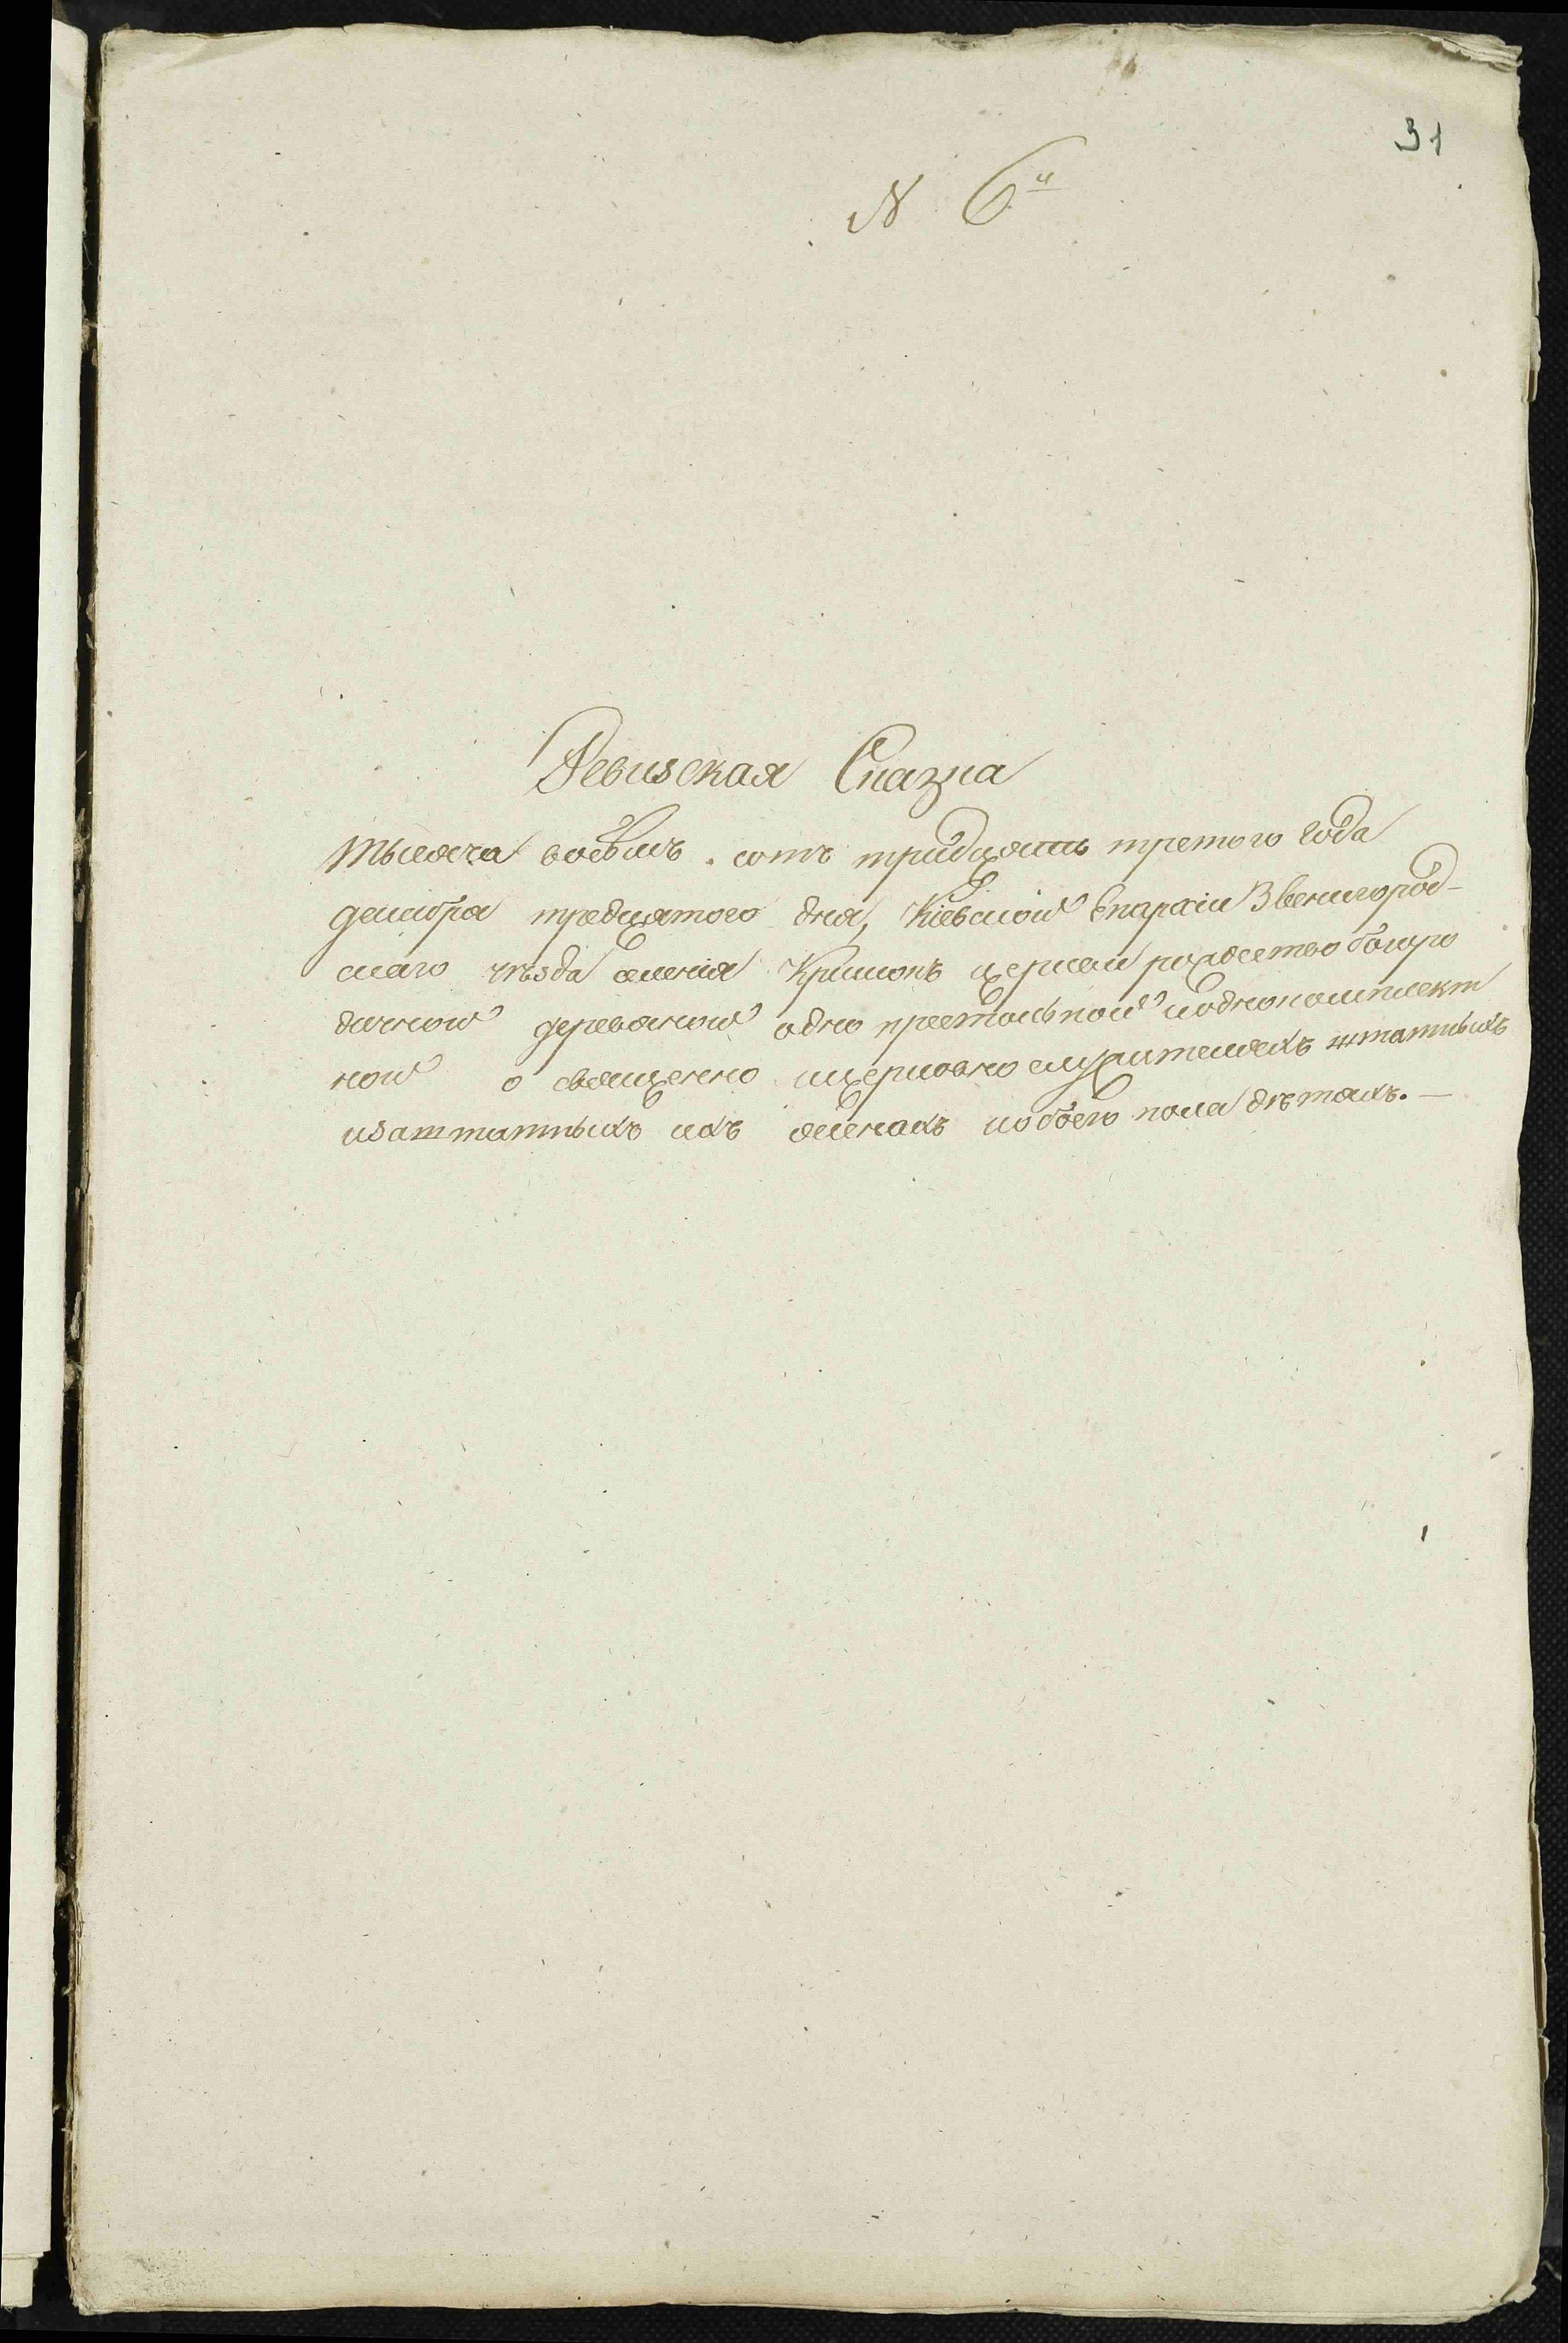 31
N 6й
Ревизская Сказка
тысяча восемъ сотъ тридцать третого года
декабря тредцятого дня, Кіевской Епархіи Звенигород-
скаго уѣзда селенія Кришокъ церкви рождество богоро
дичной деревяной одно престольной иоднокомплект
ной о священно ицерковно служителяхъ штатныхъ
изаштатныхъ ихъ женахъ иобоего пола дѣтяхъ.—